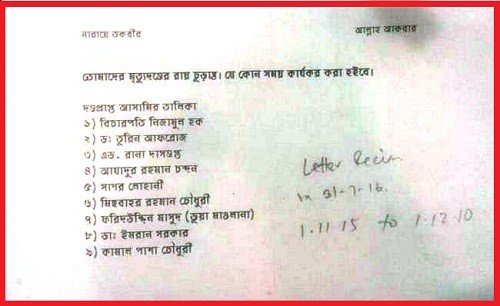 নারায়ে তকবীর আল্লাহু আকবার
তোমাদের মৃত্যুদন্ডের রায় চূড়ান্ত। যে কোন সময় কার্যকর করা হইবে।
দণ্ডপ্রাপ্ত আসামির তালিকা
১) বিচারপতি নিজামুল হক
২) ড: তুরিন আফরোজ
৩) এড. রানা দাসগুপ্ত
৪) আযাদুর রহমান চন্দন
৫) সাগর লোহানী
৬) মিছবাহুর রহমান চৌধুরী
৭) ফরিদউদ্দিন মাসুদ (ভুয়া মাওলানা)
৮) ডাঃ ইমরান সরকার
৯) কামাল পাশা চৌধুরী
Letter
31-7-16.
1.11.15 to 1.12.10